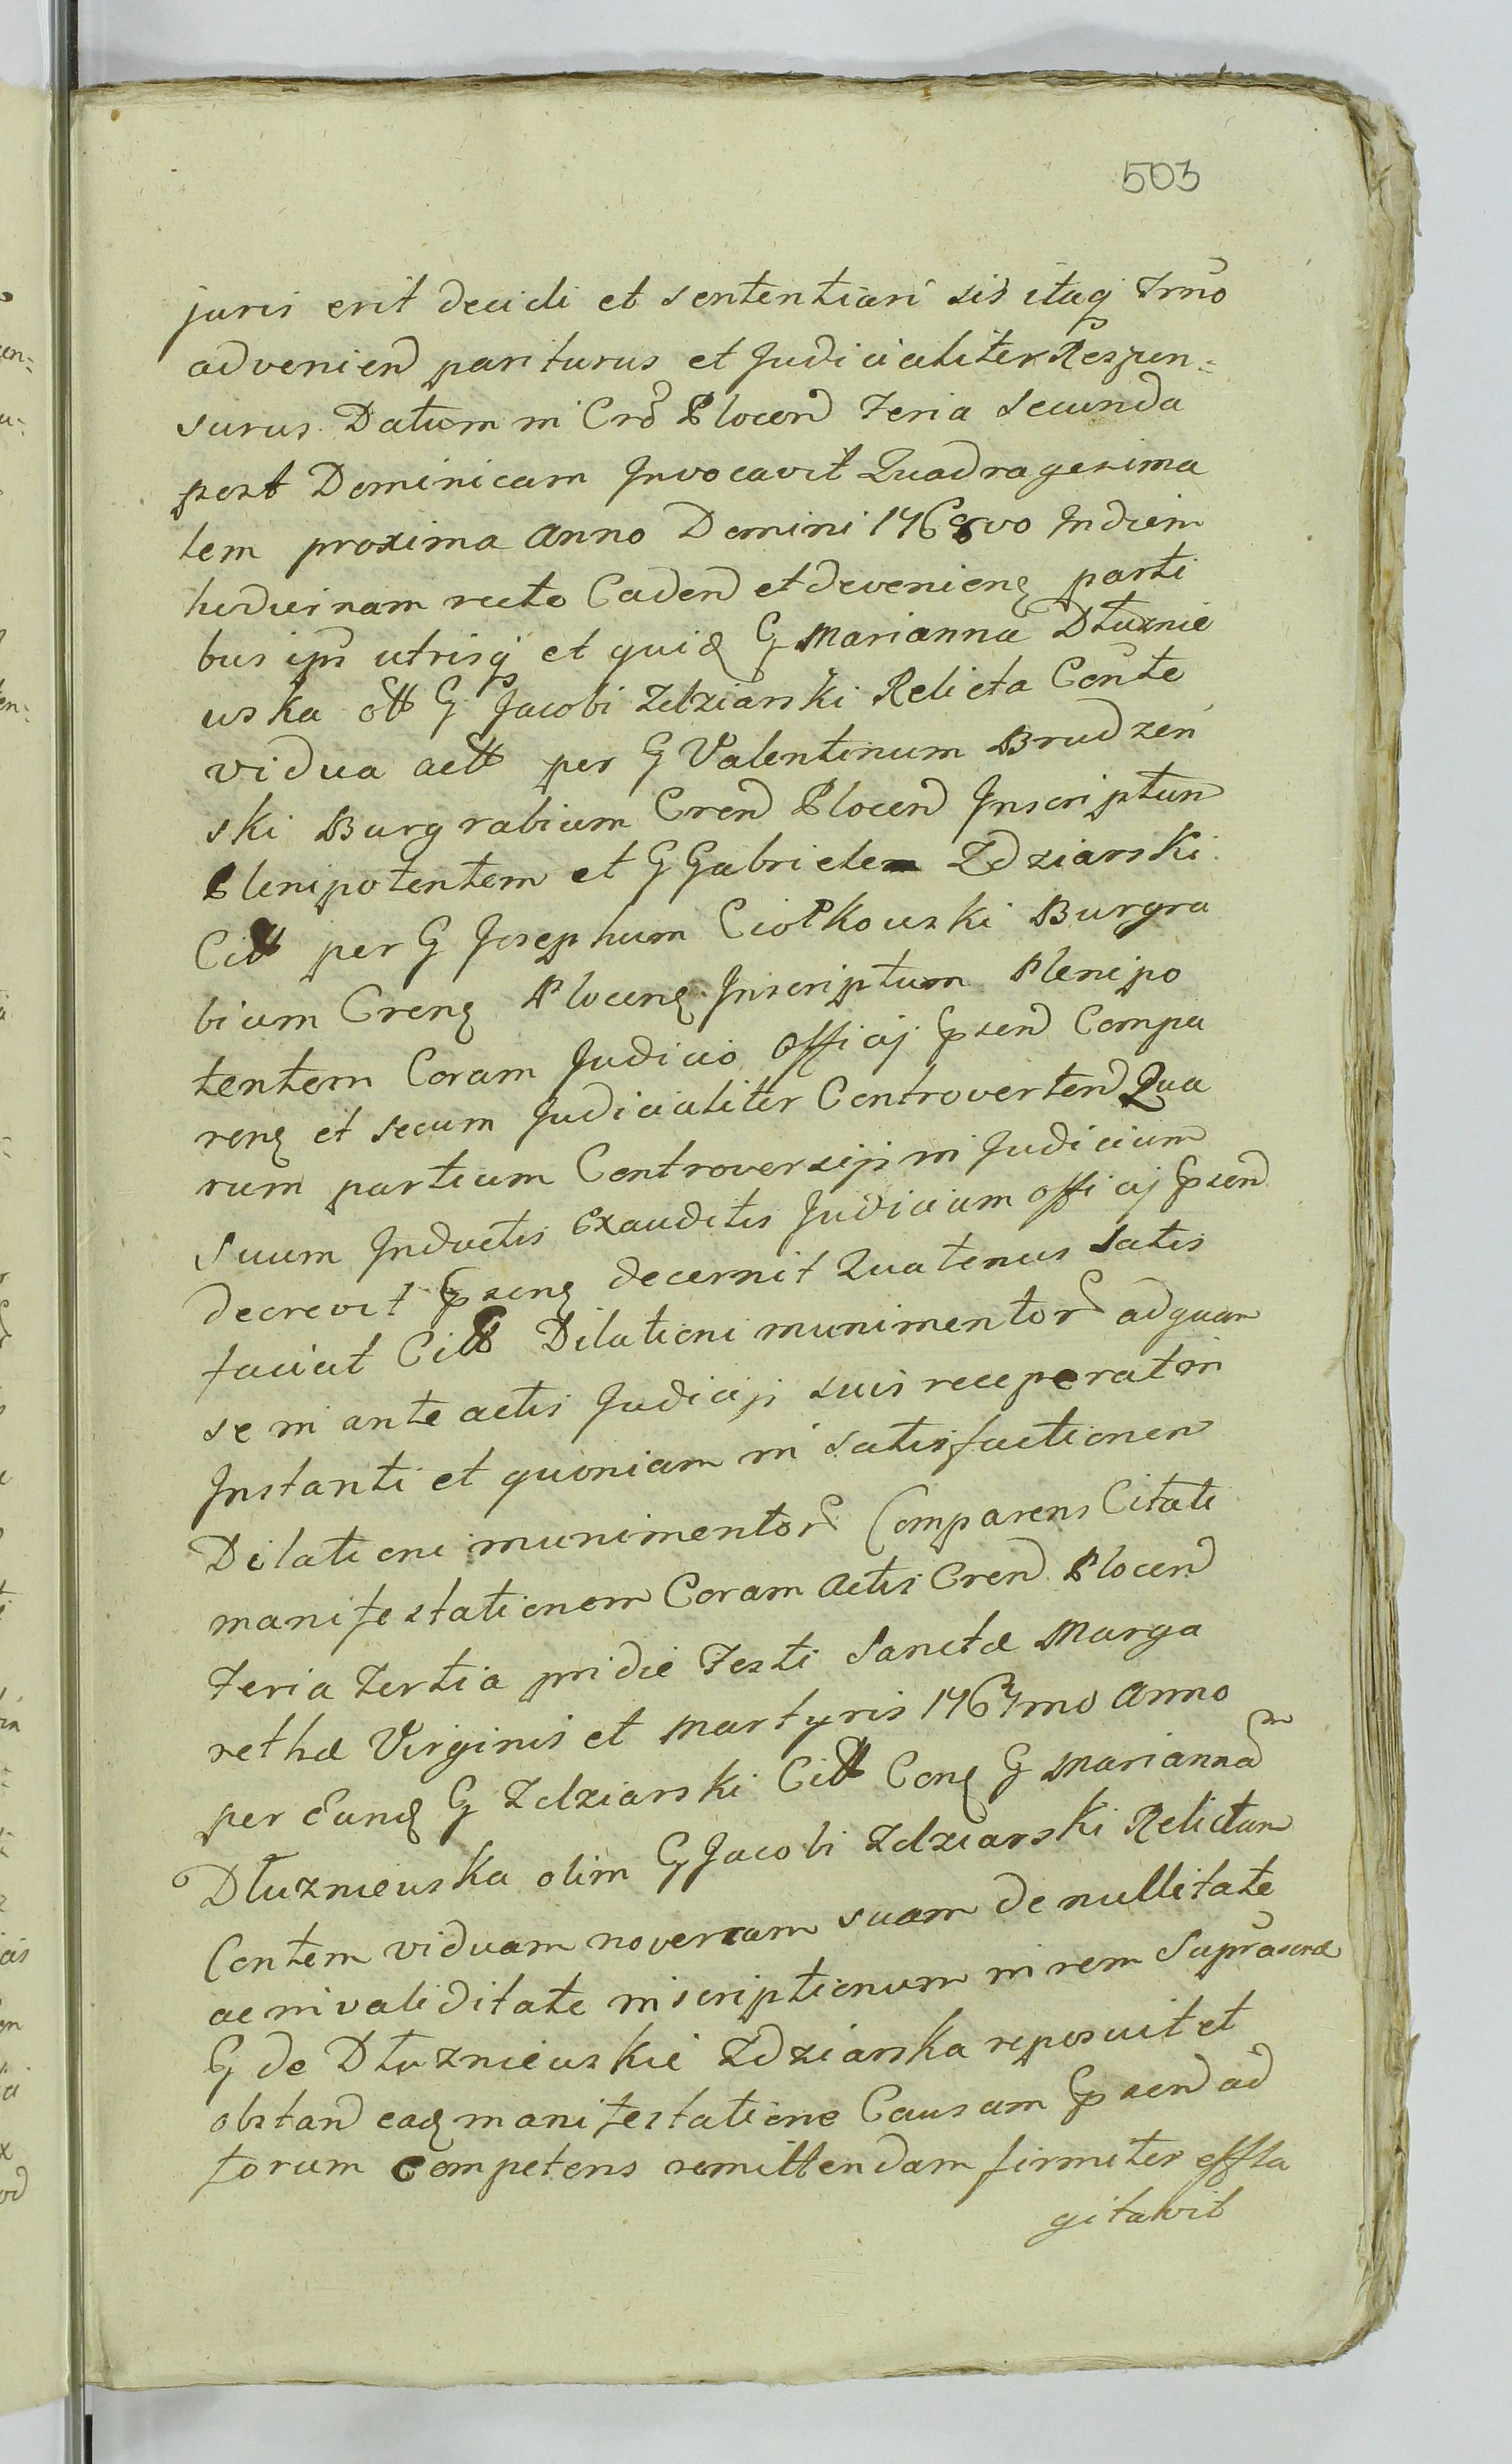 503
juris erit decidi et sententiari sis itaq Trnõ
advenien pariturus et Judicialiter Respon=
surus Datum in Crõ Plocen Feria Secunda
post Dominicam Invocavit Quadragesima
lem proxima Anno Domini 1768vo Indiem
hodiernam recto Caden et devenien parti
bus ips utrisq et quid G Marianna Dłuznie
wska olt G Jacobi Zdziarski Relicta Conte
vidua actt per G Valentinum Brudzeń
ski Burgrabium Cren Plocen Inscriptum
Plenipotentem et G Gabrielem Zdziarski
Citt per G Josephum Ciołkowski Burgra
bium Cren Plocen Inscriptum Plenipo
tentem Coram Judicio Officij Ppsen Compa
ren et secum Judicialiter Controverten Qua
rum partium Controversijs in Judicium
Suum Inductis Exauditis Judicium officij Ppsen
decrevit Ppsen decernit Quatenus Satis
faciat Citt Dilationi munimentor ad quam
se in ante actis Judicijs suis receperat in
Instanti et quoniam in satisfactionem
Dilationi munimentor Comparens Citati
manifestationem Coram Actis Cren Plocen
Feria Tertia pridie Festi Sanctæ Marga
rethæ Virginis et Martyris 1767mo Anno
per Eund G Zdziarski Citt Con G Mariannam
Dłuzniewska olim G Jacobi Zdziarski Relictam
Contem viduam novercam suam de nullitate
ac invaliditate inscriptionum in rem Suprascræ
G de Dłuzniewskie Zdziarska reposuit et
obstan ead manifestatione Causam Ppsen ad
forum competens remittendam firmiter effla
gitavit